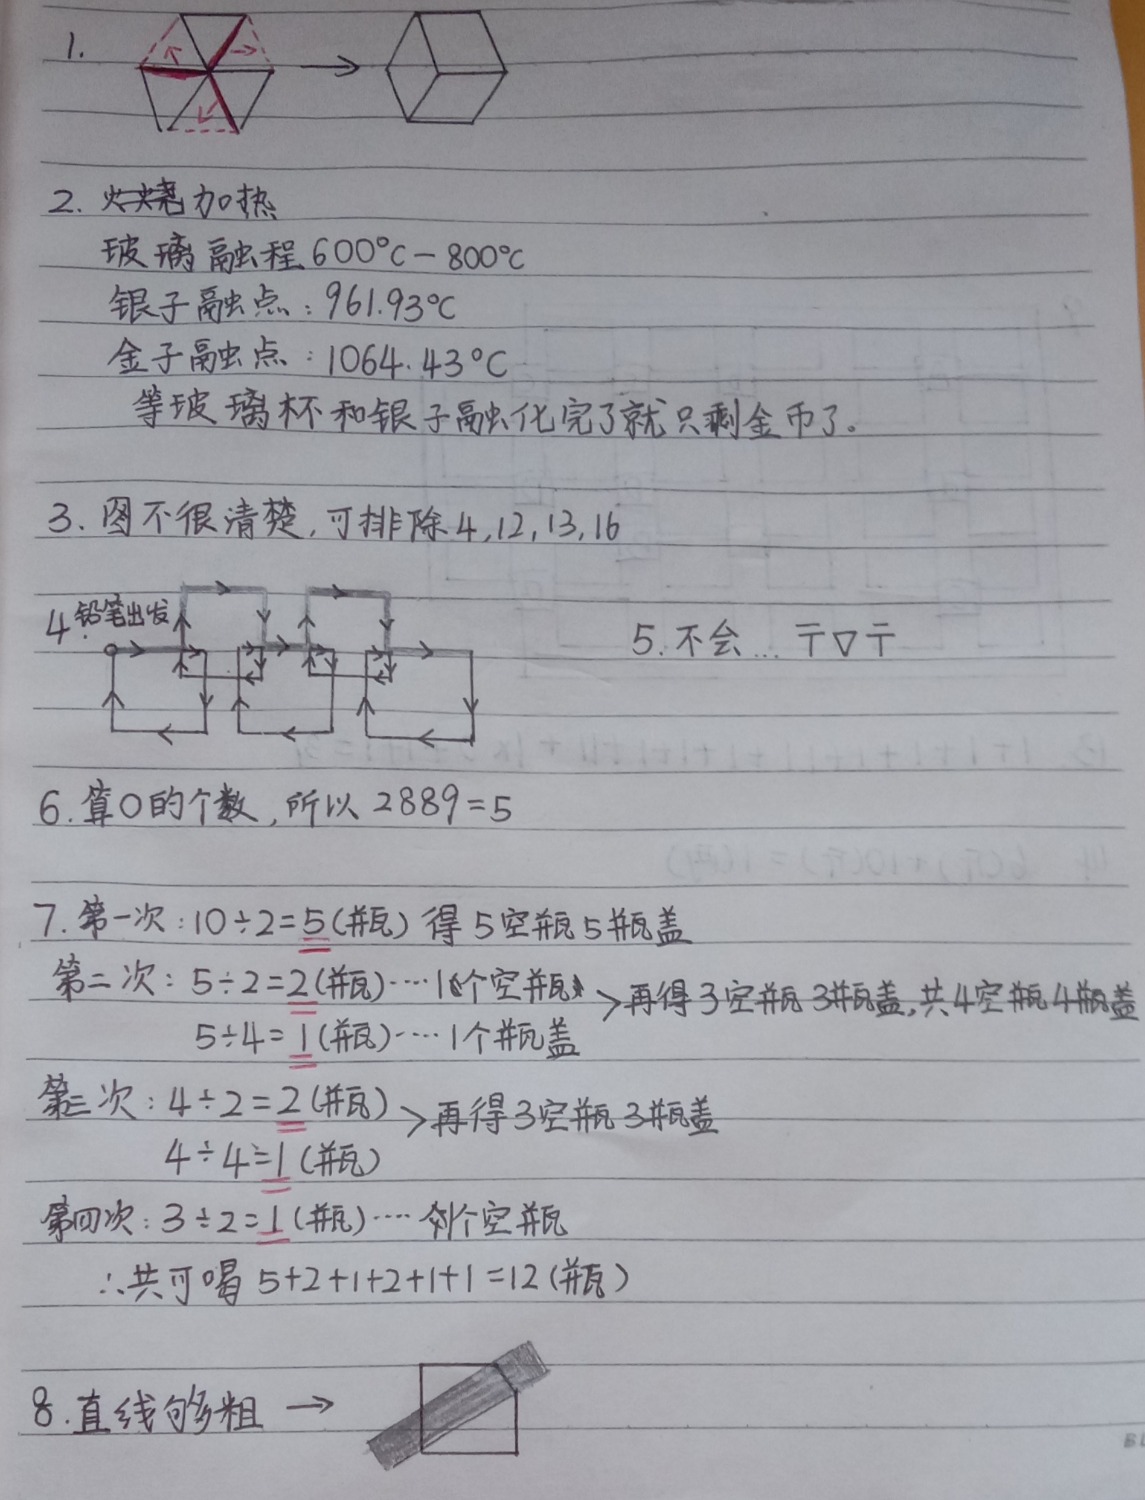 1.
2. 火烧加热
玻璃融程600°C-800°C
银子融点:961.93°C
金子融点:1064.43°C
等玻璃杯和银子融化完了就只剩金币了。
3. 图不很清楚,可排除4,12,13,16
4. 铅笔出发
5. 不会... 干▽干
6. 算0的个数,所以2889=5
7. 第一次:10÷2=5(瓶) 得5空瓶5瓶盖
第二次:5÷2=2(瓶)……1个空瓶
5÷4=1(瓶)……1个瓶盖
>再得3空瓶3瓶盖,共4空瓶4瓶盖
第三次:4÷2=2(瓶)
4÷4=1(瓶)
>再得3空瓶3瓶盖
第四次:3÷2=1(瓶)……个空瓶
∴共可喝5+2+1+2+1+1=12(瓶)
8. 直线够粗→